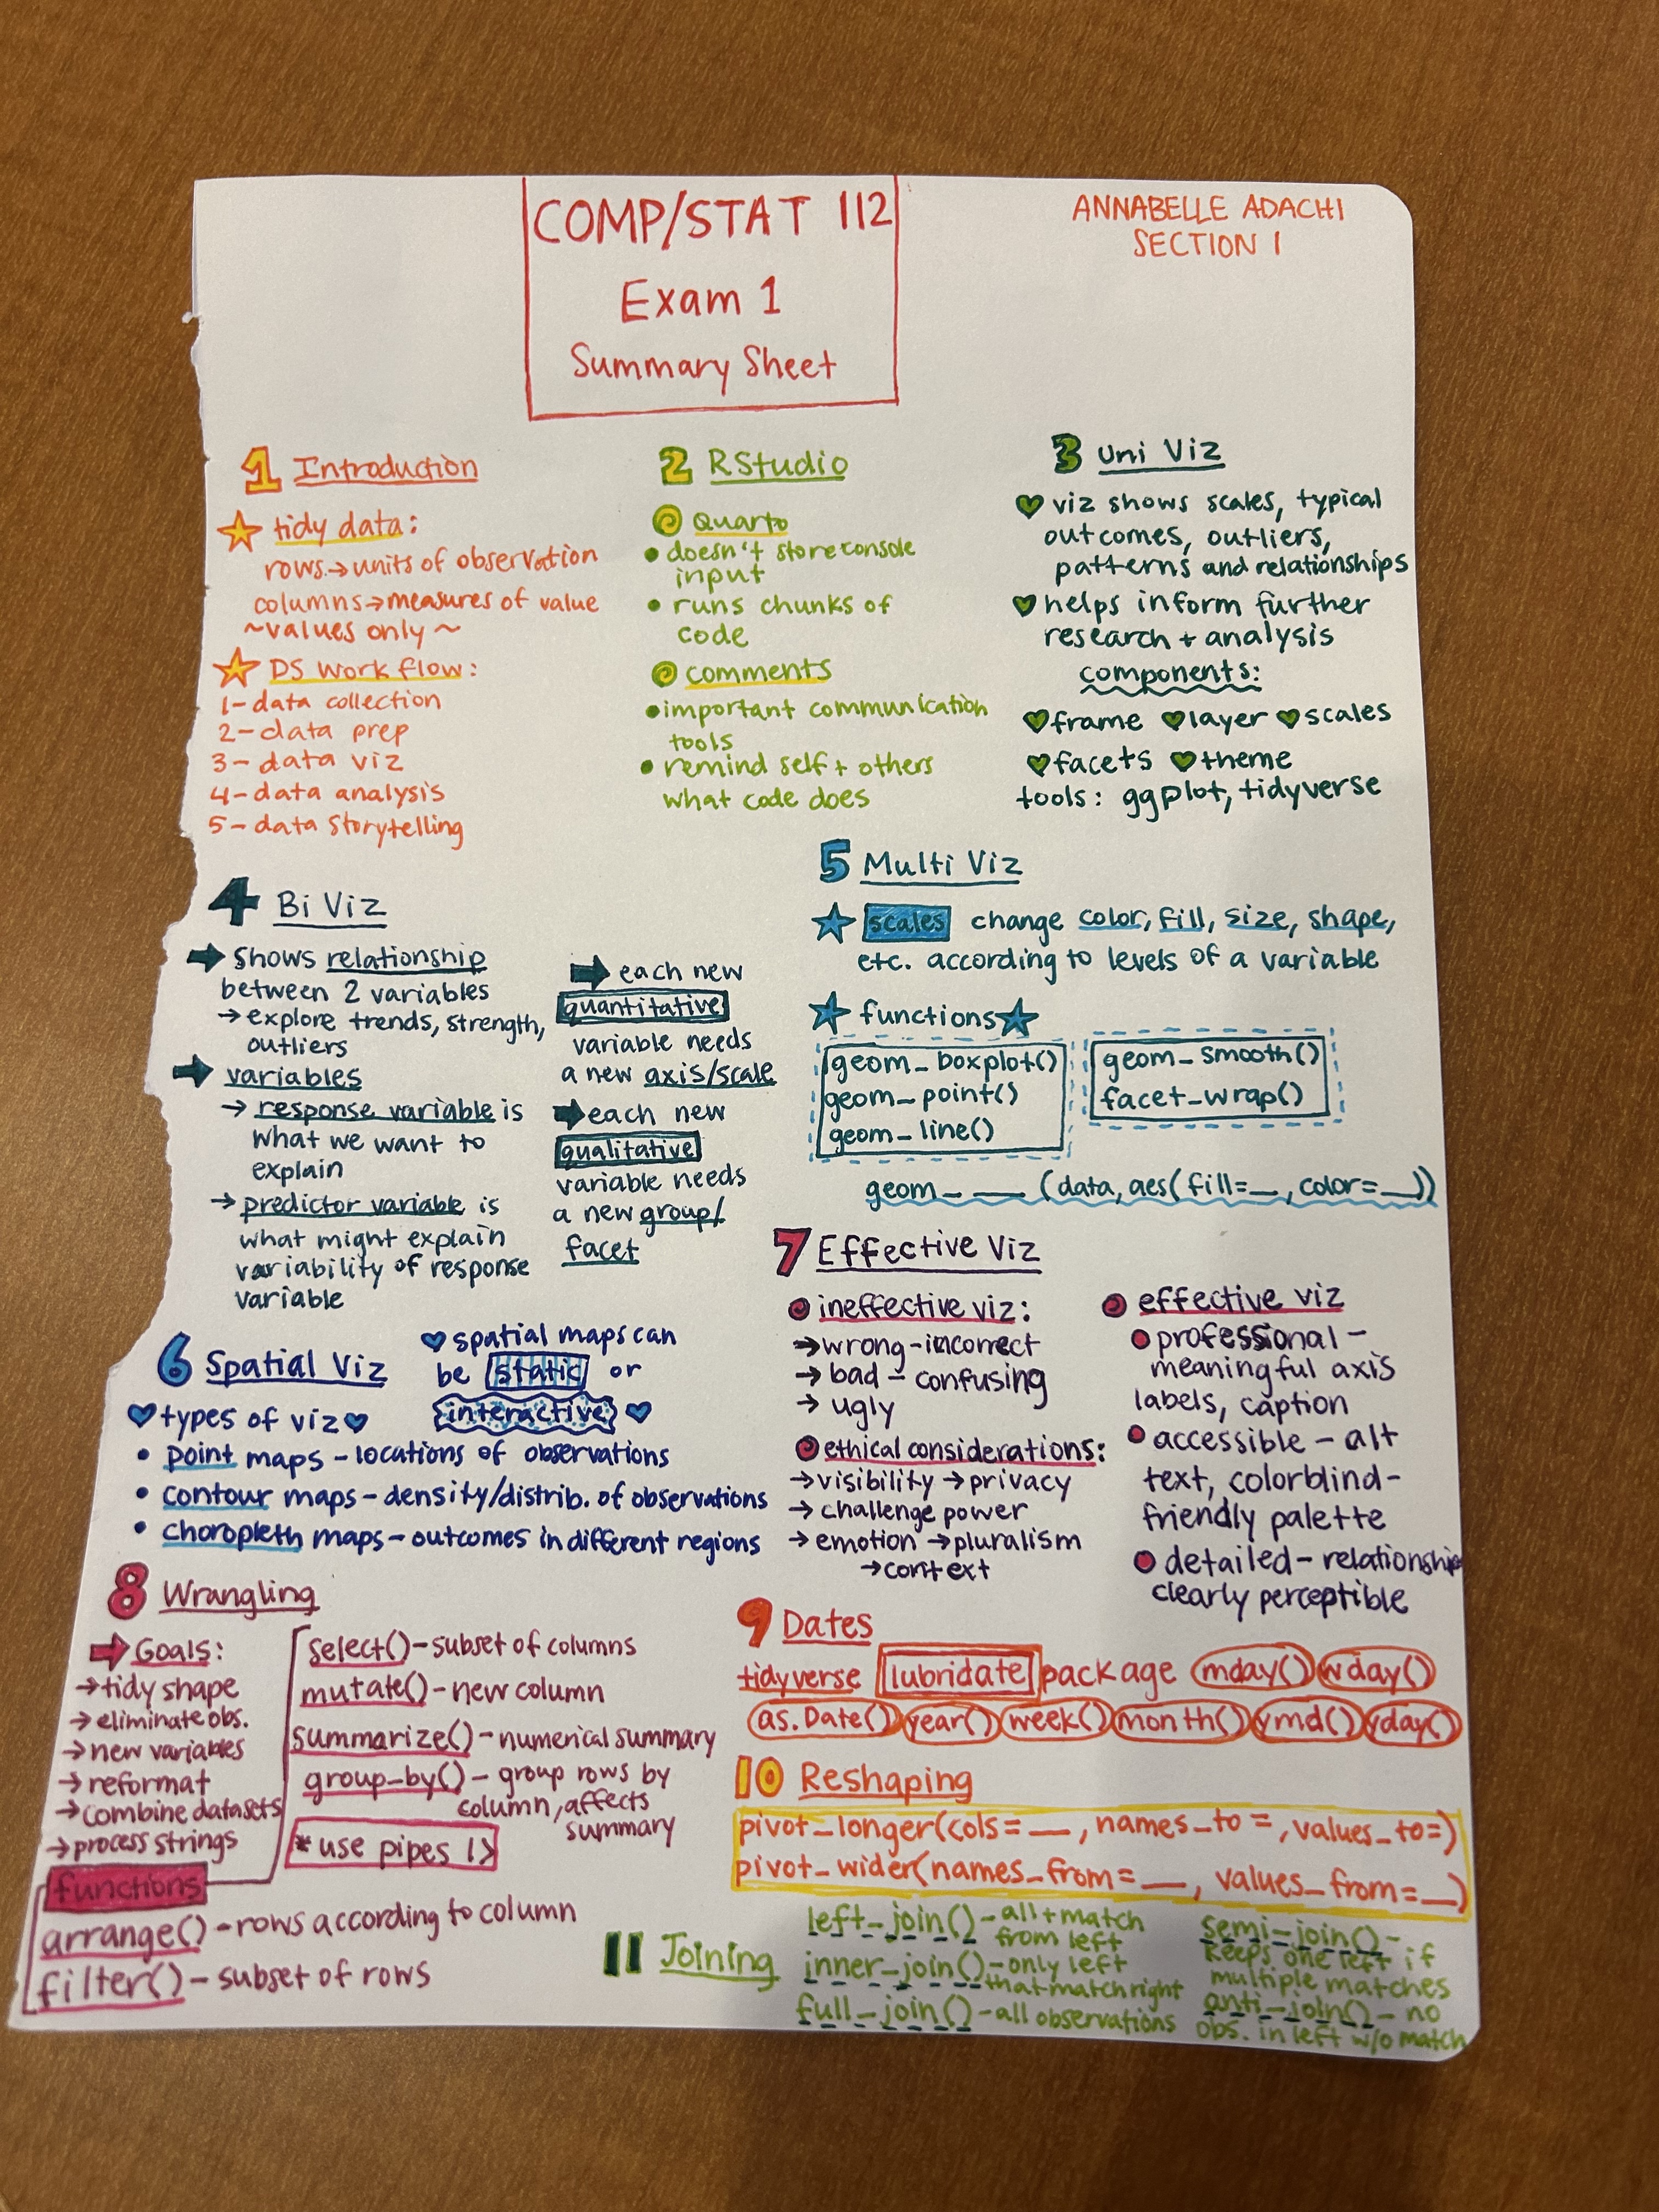 COMP/STAT 112
Exam 1
Summary Sheet
ANNABELLE ADACHI
SECTION 1
1 Introduction
tidy data:
rows → units of observation
columns → measures of value
~values only~
DS Work flow:
1 - data collection
2 - data prep
3 - data viz
4 - data analysis
5 - data storytelling
2 RStudio
Quarto
• doesn't store console
input
• runs chunks of
code
comments
• important communication
tools
• remind self + others
what code does
3 Uni Viz
viz shows scales, typical
outcomes, outliers,
patterns and relationships
helps inform further
research + analysis
components:
frame layer scales
facets theme
tools: ggplot, tidyverse
4 Bi Viz
shows relationship
between 2 variables
→ explore trends, strength,
outliers
variables
→ response variable is
what we want to
explain
→ predictor variable is
what might explain
variability of response
variable
each new
quantitative
variable needs
a new axis/scale
each new
qualitative
variable needs
a new group/
facet
5 Multi Viz
scales change color, fill, size, shape,
etc. according to levels of a variable
functions
geom_boxplot()
geom_point()
geom_line()
geom_smooth()
facet_wrap()
geom_ __ (data, aes(fill=__, color=__))
6 Spatial Viz
spatial maps can
be static or
interactive
types of viz
• point maps - locations of observations
• contour maps - density/distrib. of observations
• choropleth maps - outcomes in different regions
7 Effective Viz
ineffective viz:
→ wrong - incorrect
→ bad - confusing
→ ugly
ethical considerations:
→ visibility → privacy
→ challenge power
→ emotion → pluralism
→ context
effective viz
professional -
meaningful axis
labels, caption
accessible - alt
text, colorblind-
friendly palette
detailed - relationship
clearly perceptible
8 Wrangling
Goals:
→ tidy shape
→ eliminate obs.
→ new variables
→ reformat
→ combine datasets
→ process strings
functions
select() - subset of columns
mutate() - new column
summarize() - numerical summary
group_by() - group rows by
column, affects
summary
* use pipes |>
arrange() - rows according to column
filter() - subset of rows
9 Dates
tidyverse lubridate package mday() wday()
as.Date() year() week() month() ymd() yday()
10 Reshaping
pivot_longer(cols = __, names_to =, values_to=)
pivot_wider(names_from = __, values_from = __)
11 Joining
left_join() - all + match
from left
inner_join() - only left
that match right
full_join() - all observations
semi_join() -
keeps one left if
multiple matches
anti_join() - no
obs. in left w/o match